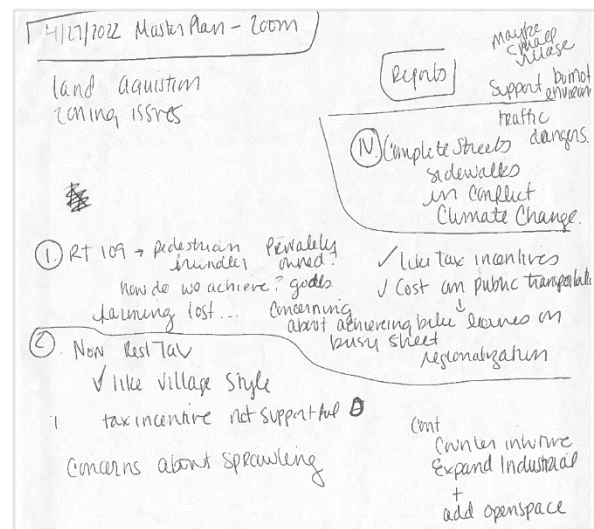 4/27/2022 Master Plan - Zoom
land aquistion
zoning issues
Reports
Maybe
small
village
Support but not
environ
traffic
dangers.
IV. Complete Streets
sidewalks
in conflict
Climate Change.
1. RT 109 → pedestrian friendly
Privately owned?
how do we achieve? goals
farming lost...
Concerning
about achieving bike leaves on
busy street
✓ like tax incentives
✓ Cost on public transportatio
↓
regionalization
2. Non Resi Tax
✓ like village style
tax incentive not supportful
Concerns about sprawling
Cont
Counter intuitive
Expand Industrial
+
add openspace